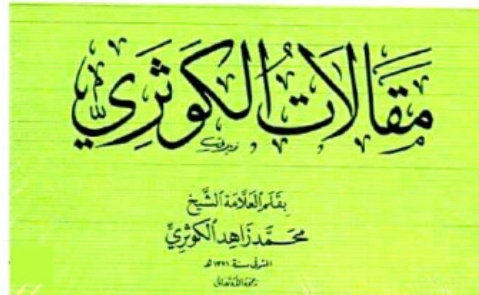 مَقَالَاتُ الكَوثَرِي
بِقَلَمِ العَلَّامَة الشَّيخ
محَمَّد زَاهِد الكَوثَرِيّ
المتوفى سنة ١٣٧١ هـ
رحمه الله تعالى